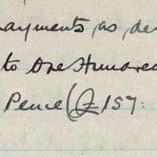 ayments, as, de
to One Hundred
Pence (£157.